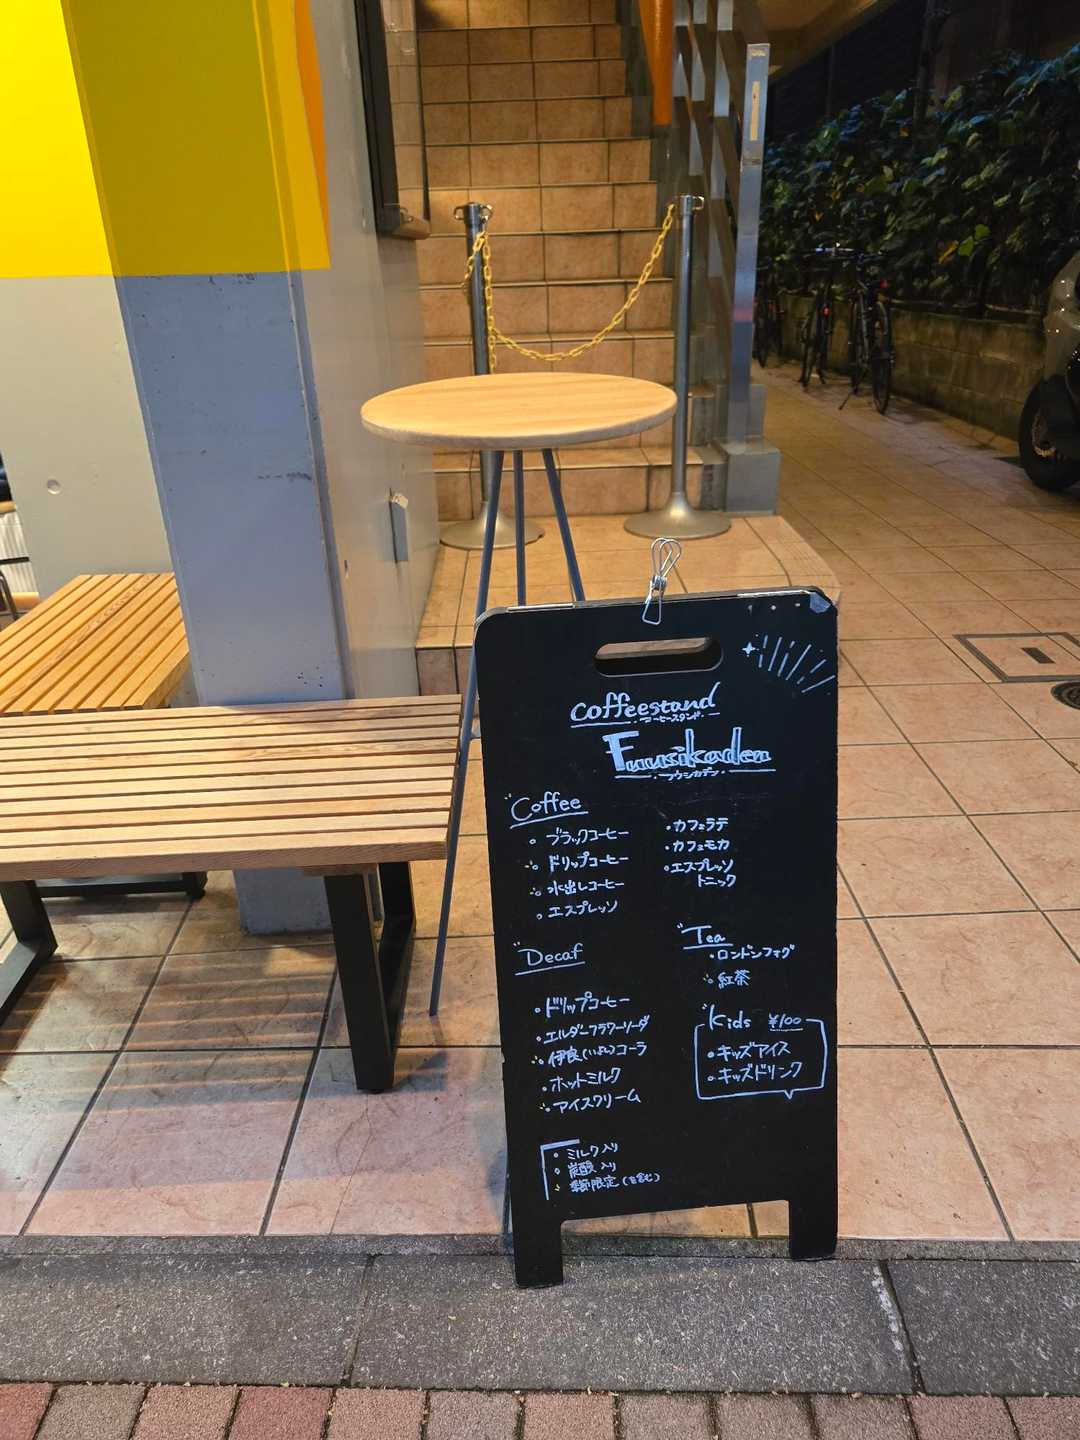 coffeestand
コーヒースタンド
Fuusikaden
フウシカデン
Coffee
ブラックコーヒー
ドリップコーヒー
水出しコーヒー
エスプレッソ
カフェラテ
カフェモカ
エスプレッソ
トニック
Decaf
ドリップコーヒー
エルダーフラワーソーダ
伊良(いよし)コーラ
ホットミルク
アイスクリーム
Tea
ロンドンフォグ
紅茶
Kids ¥100
キッズアイス
キッズドリンク
ミルク入り
炭酸入り
季節限定(を含む)